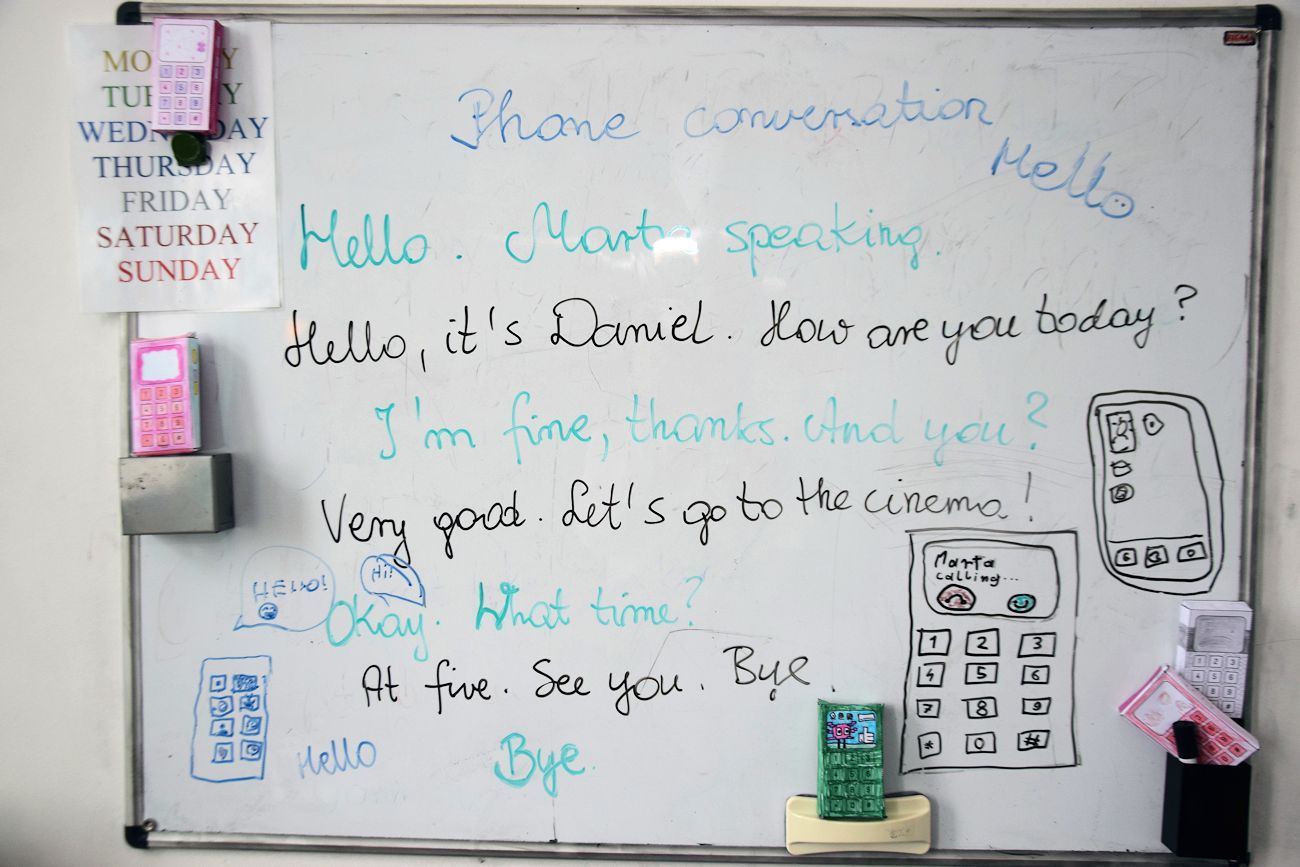 MONDAY
TUESDAY
WEDNESDAY
THURSDAY
FRIDAY
SATURDAY
SUNDAY
SIGMA
Phone conversation
Hello
Hello. Marta speaking.
Hello, it's Daniel. How are you today?
I'm fine, thanks. And you?
Very good. Let's go to the cinema!
HELLO!
Hi!
Okay. What time?
At five. See you. Bye.
Hello
Bye.
Marta
calling...
1 2 3
4 5 6
7 8 9
* 0 #